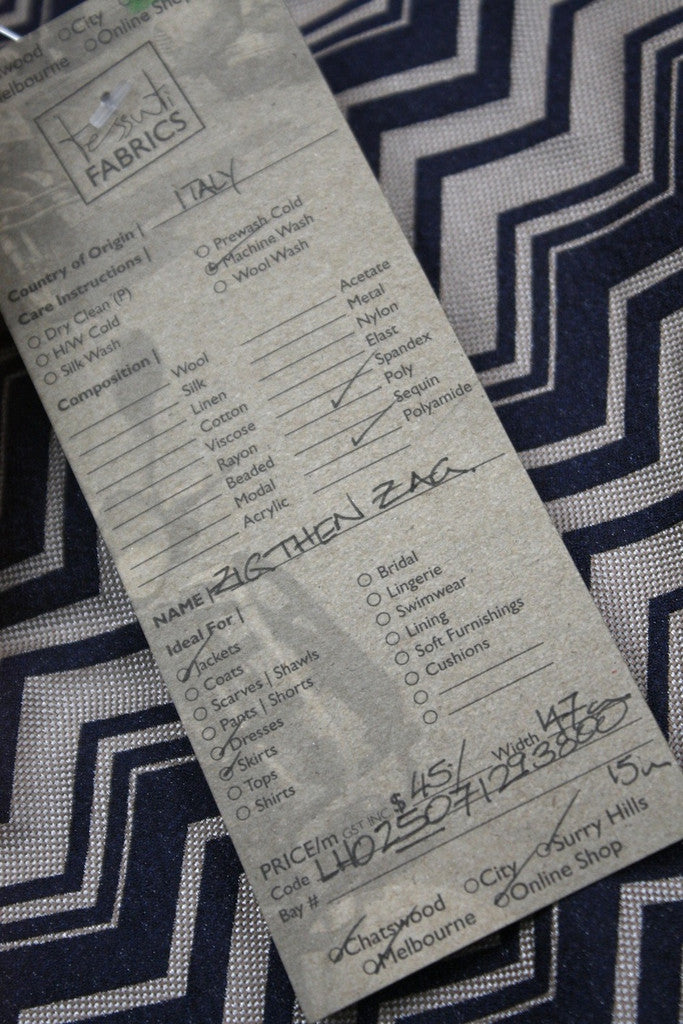 City
Melbourne
Online Shop
tessuti
FABRICS
Country of Origin | ITALY
Care Instructions |
Dry Clean (P)
H/W Cold
Silk Wash
Prewash Cold
Machine Wash
Wool Wash
Composition |
Wool
Silk
Linen
Cotton
Viscose
Rayon
Beaded
Modal
Acrylic
Acetate
Metal
Nylon
Elast
Spandex
Poly
Sequin
Polyamide
NAME | ZIG THEN ZAG.
Ideal For |
Jackets
Coats
Scarves | Shawls
Pants | Shorts
Dresses
Skirts
Tops
Shirts
Bridal
Lingerie
Swimwear
Lining
Soft Furnishings
Cushions
PRICE/m GST INC $ 45/ Width 147cm
Code LH025071293800
Bay # 15m
Chatswood City Surry Hills
Melbourne Online Shop